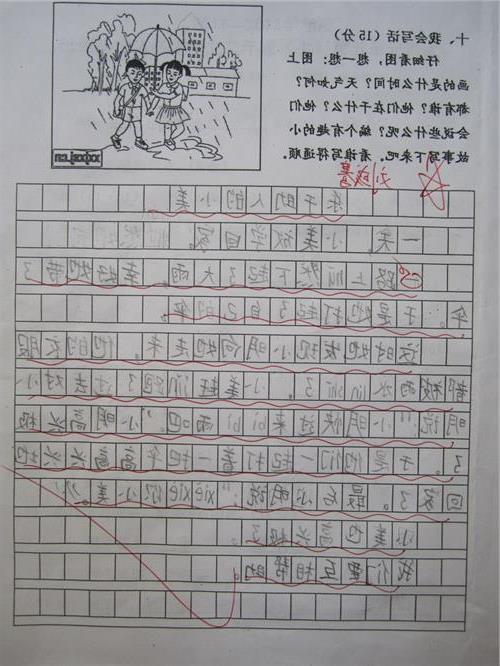 十、我会写话（15分）
仔细看图，想一想：图上
画的是什么时间？天气如何？
都有谁？他们在干什么？他们
会说些什么呢？编个有趣的小
故事写下来吧，看谁写得通顺
乐于助人的小美
一天，小美放学回家，
路上hū然下起了大雨，幸好她带了
伞。于是她打起了自己的伞。
这时她发现小明向她走来，他的衣服
都被雨水lín shī了。小美赶jǐn跑了过去对小
明说：“小明快过来bì bì雨吧。”小明高兴极
了。于是他们一起打着一把伞高高兴兴地
回家了。最后小明说：“xiè xiè你小美。”
小美也高兴极了。
我们要互相帮助。